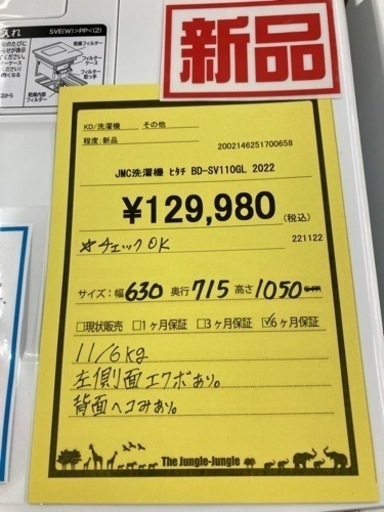 入れ
SVE(W)>PP<(Z)
乾燥フィルター
フィルター
ケース
フィルター
取っ手
乾燥内部
フィルター
新品
KD/洗濯機 その他
程度:新品
2002146251700658
JMC洗濯機 ﾋﾀﾁ BD-SV110GL 2022
¥129,980(税込)
☆チェックOK
221122
サイズ:幅630 奥行715 高さ1050
□現状販売 □1ヶ月保証 □3ヶ月保証 ☑6ヶ月保証
11/6kg
左側面エクボあり。
背面ヘコみあり。
The Jungle-Jungle